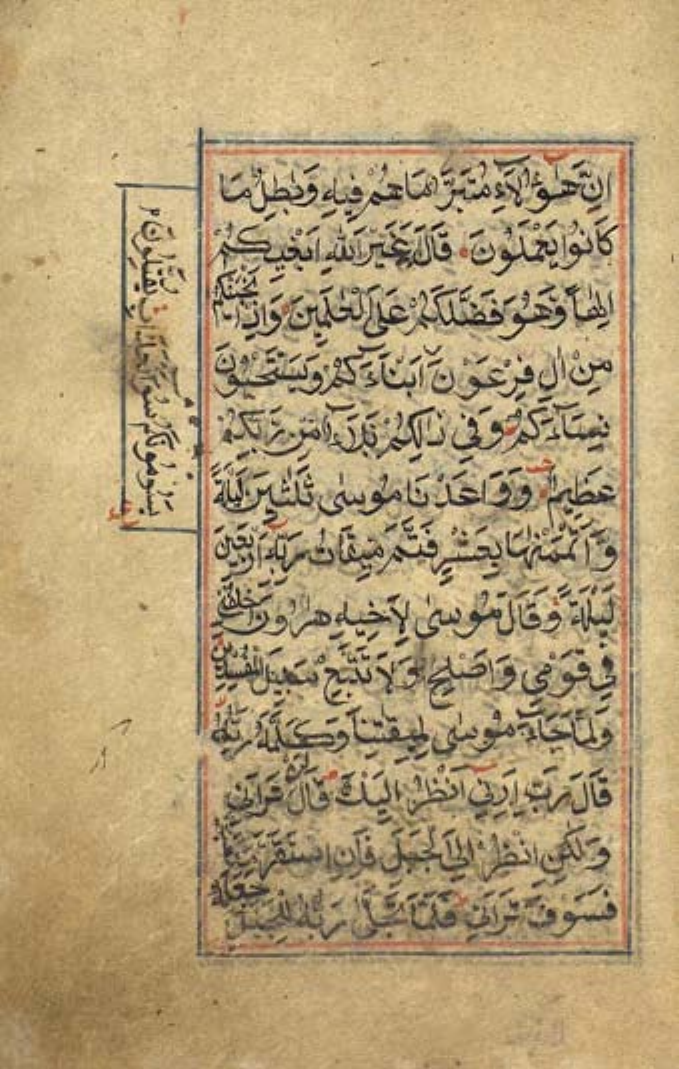 اِنَّ هٰٓؤُلَآءِ مُتَبَّرٌ مَا هُمْ فِيهِ وَبٰطِلٌ مَا
كَانُوا يَعْمَلُونَ قَالَ اَغَيْرَ اللّٰهِ اَبْغِيكُمْ
اِلٰهًا وَهُوَ فَضَّلَكُمْ عَلَى الْعٰلَمِينَ وَاِذْ اَنْجَيْنٰكُمْ
مِنْ اٰلِ فِرْعَوْنَ اَبْنَآءَكُمْ وَيَسْتَحْيُونَ
نِسَآءَكُمْ وَفِي ذٰلِكُمْ بَلَآءٌ مِنْ رَبِّكُمْ
عَظِيمٌ وَوَاعَدْنَا مُوسٰى ثَلٰثِينَ لَيْلَةً
وَاَتْمَمْنٰهَا بِعَشْرٍ فَتَمَّ مِيقَاتُ رَبِّهِ اَرْبَعِينَ
لَيْلَةً وَقَالَ مُوسٰى لِاَخِيهِ هٰرُونَ اخْلُفْنِي
فِي قَوْمِي وَاَصْلِحْ وَلَا تَتَّبِعْ سَبِيلَ الْمُفْسِدِينَ
وَلَمَّا جَآءَ مُوسٰى لِمِيقٰتِنَا وَكَلَّمَهُ رَبُّهُ
قَالَ رَبِّ اَرِنِي اَنْظُرْ اِلَيْكَ قَالَ لَنْ تَرٰىنِي
وَلٰكِنِ انْظُرْ اِلَى الْجَبَلِ فَاِنِ اسْتَقَرَّ مَكَانَهُ
فَسَوْفَ تَرٰىنِي فَلَمَّا تَجَلّٰى رَبُّهُ لِلْجَبَلِ جَعَلَهُ
يَسُومُونَكُمْ سُوٓءَ الْعَذَابِ يُقَتِّلُونَ